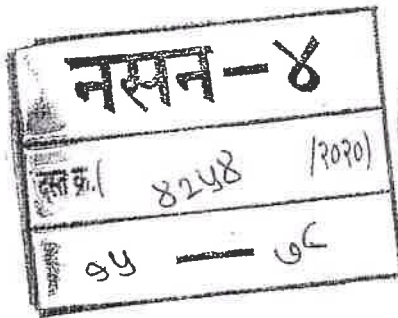 नसन-४
दस्त क्र.( ४२५४ /२०२०)
१५ — ७८